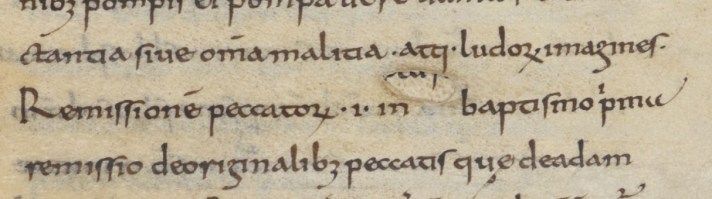 ctantia sive om̄a malitia · atq; · ludoꝝ imagines ·
Remissionē peccatoꝝ · i · in baptismo p̄mu
remissio deoriginalibꝫ peccatis que deadam